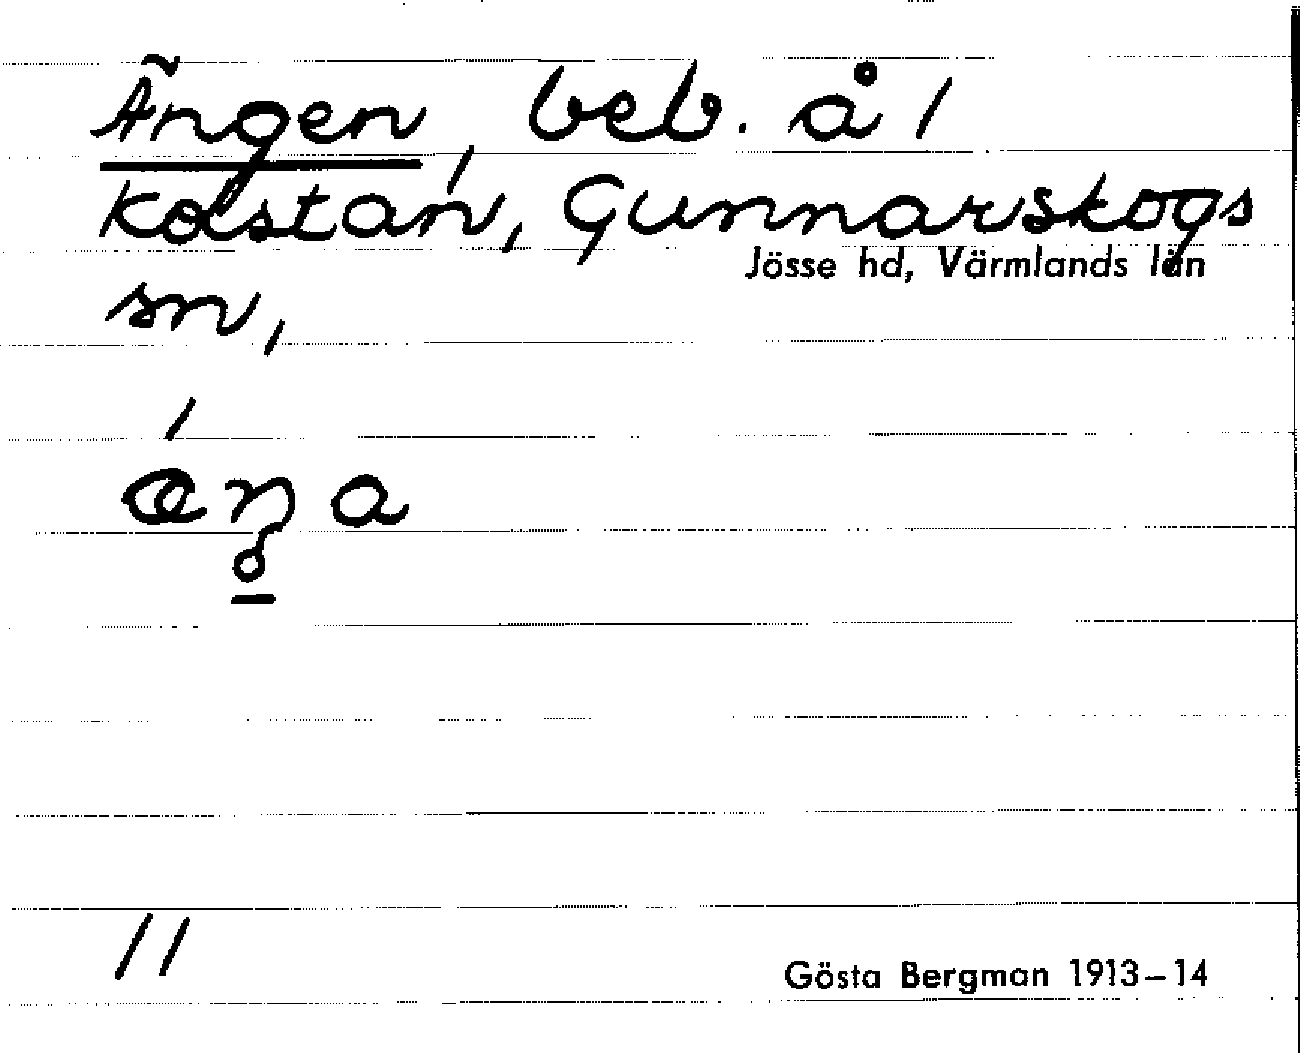 Ängen, beb. å 1
Kolstan, Gunnarskogs
Jösse hd, Värmlands län
sn,
11
Gösta Bergman 1913–14